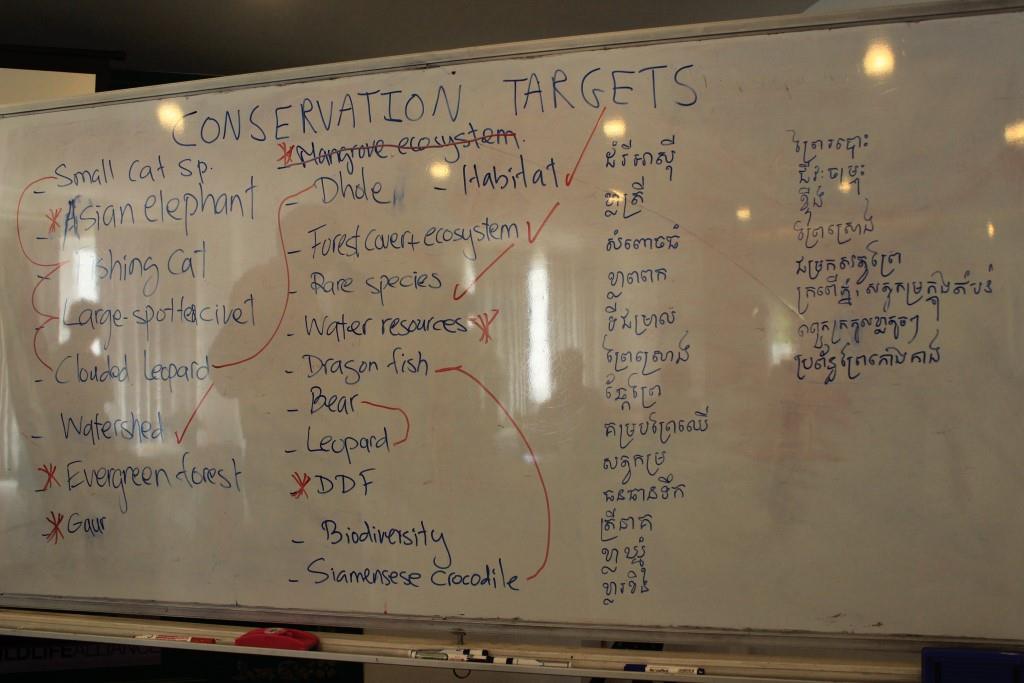 CONSERVATION TARGETS
- Small cat sp.
- Asian elephant
- Fishing cat
- Large-spotted civet
- Clouded leopard
- Watershed
Evergreen forest
Gaur
Mangrove ecosystem.
- Dhole
- Habitat
- Forest cover + ecosystem
- Rare species
- Water resources
- Dragon fish
- Bear
- Leopard
DDF
- Biodiversity
- Siamensese crocodile
ដំរីអាស៊ី
ខ្លាត្រី
សំពោចធំ
ខ្លាពពក
ទីជម្រាល
ព្រៃស្រោង
ឆ្កែព្រៃ
គម្របព្រៃឈើ
សត្វកម្រ
ធនធានទឹក
ត្រីនាគ
ខ្លាឃ្មុំ
ខ្លារខិន
ព្រៃរបោះ
ជីវៈចម្រុះ
ខ្ទីង
ព្រៃស្រោង
ជម្រកសត្វព្រៃ
ក្រពើភ្នំ, សត្វកម្រក្នុងតំបន់
ពពួកត្រកូលខ្លាតូចៗ
ប្រព័ន្ធព្រៃកោងកាង
WILDLIFE ALLIANCE